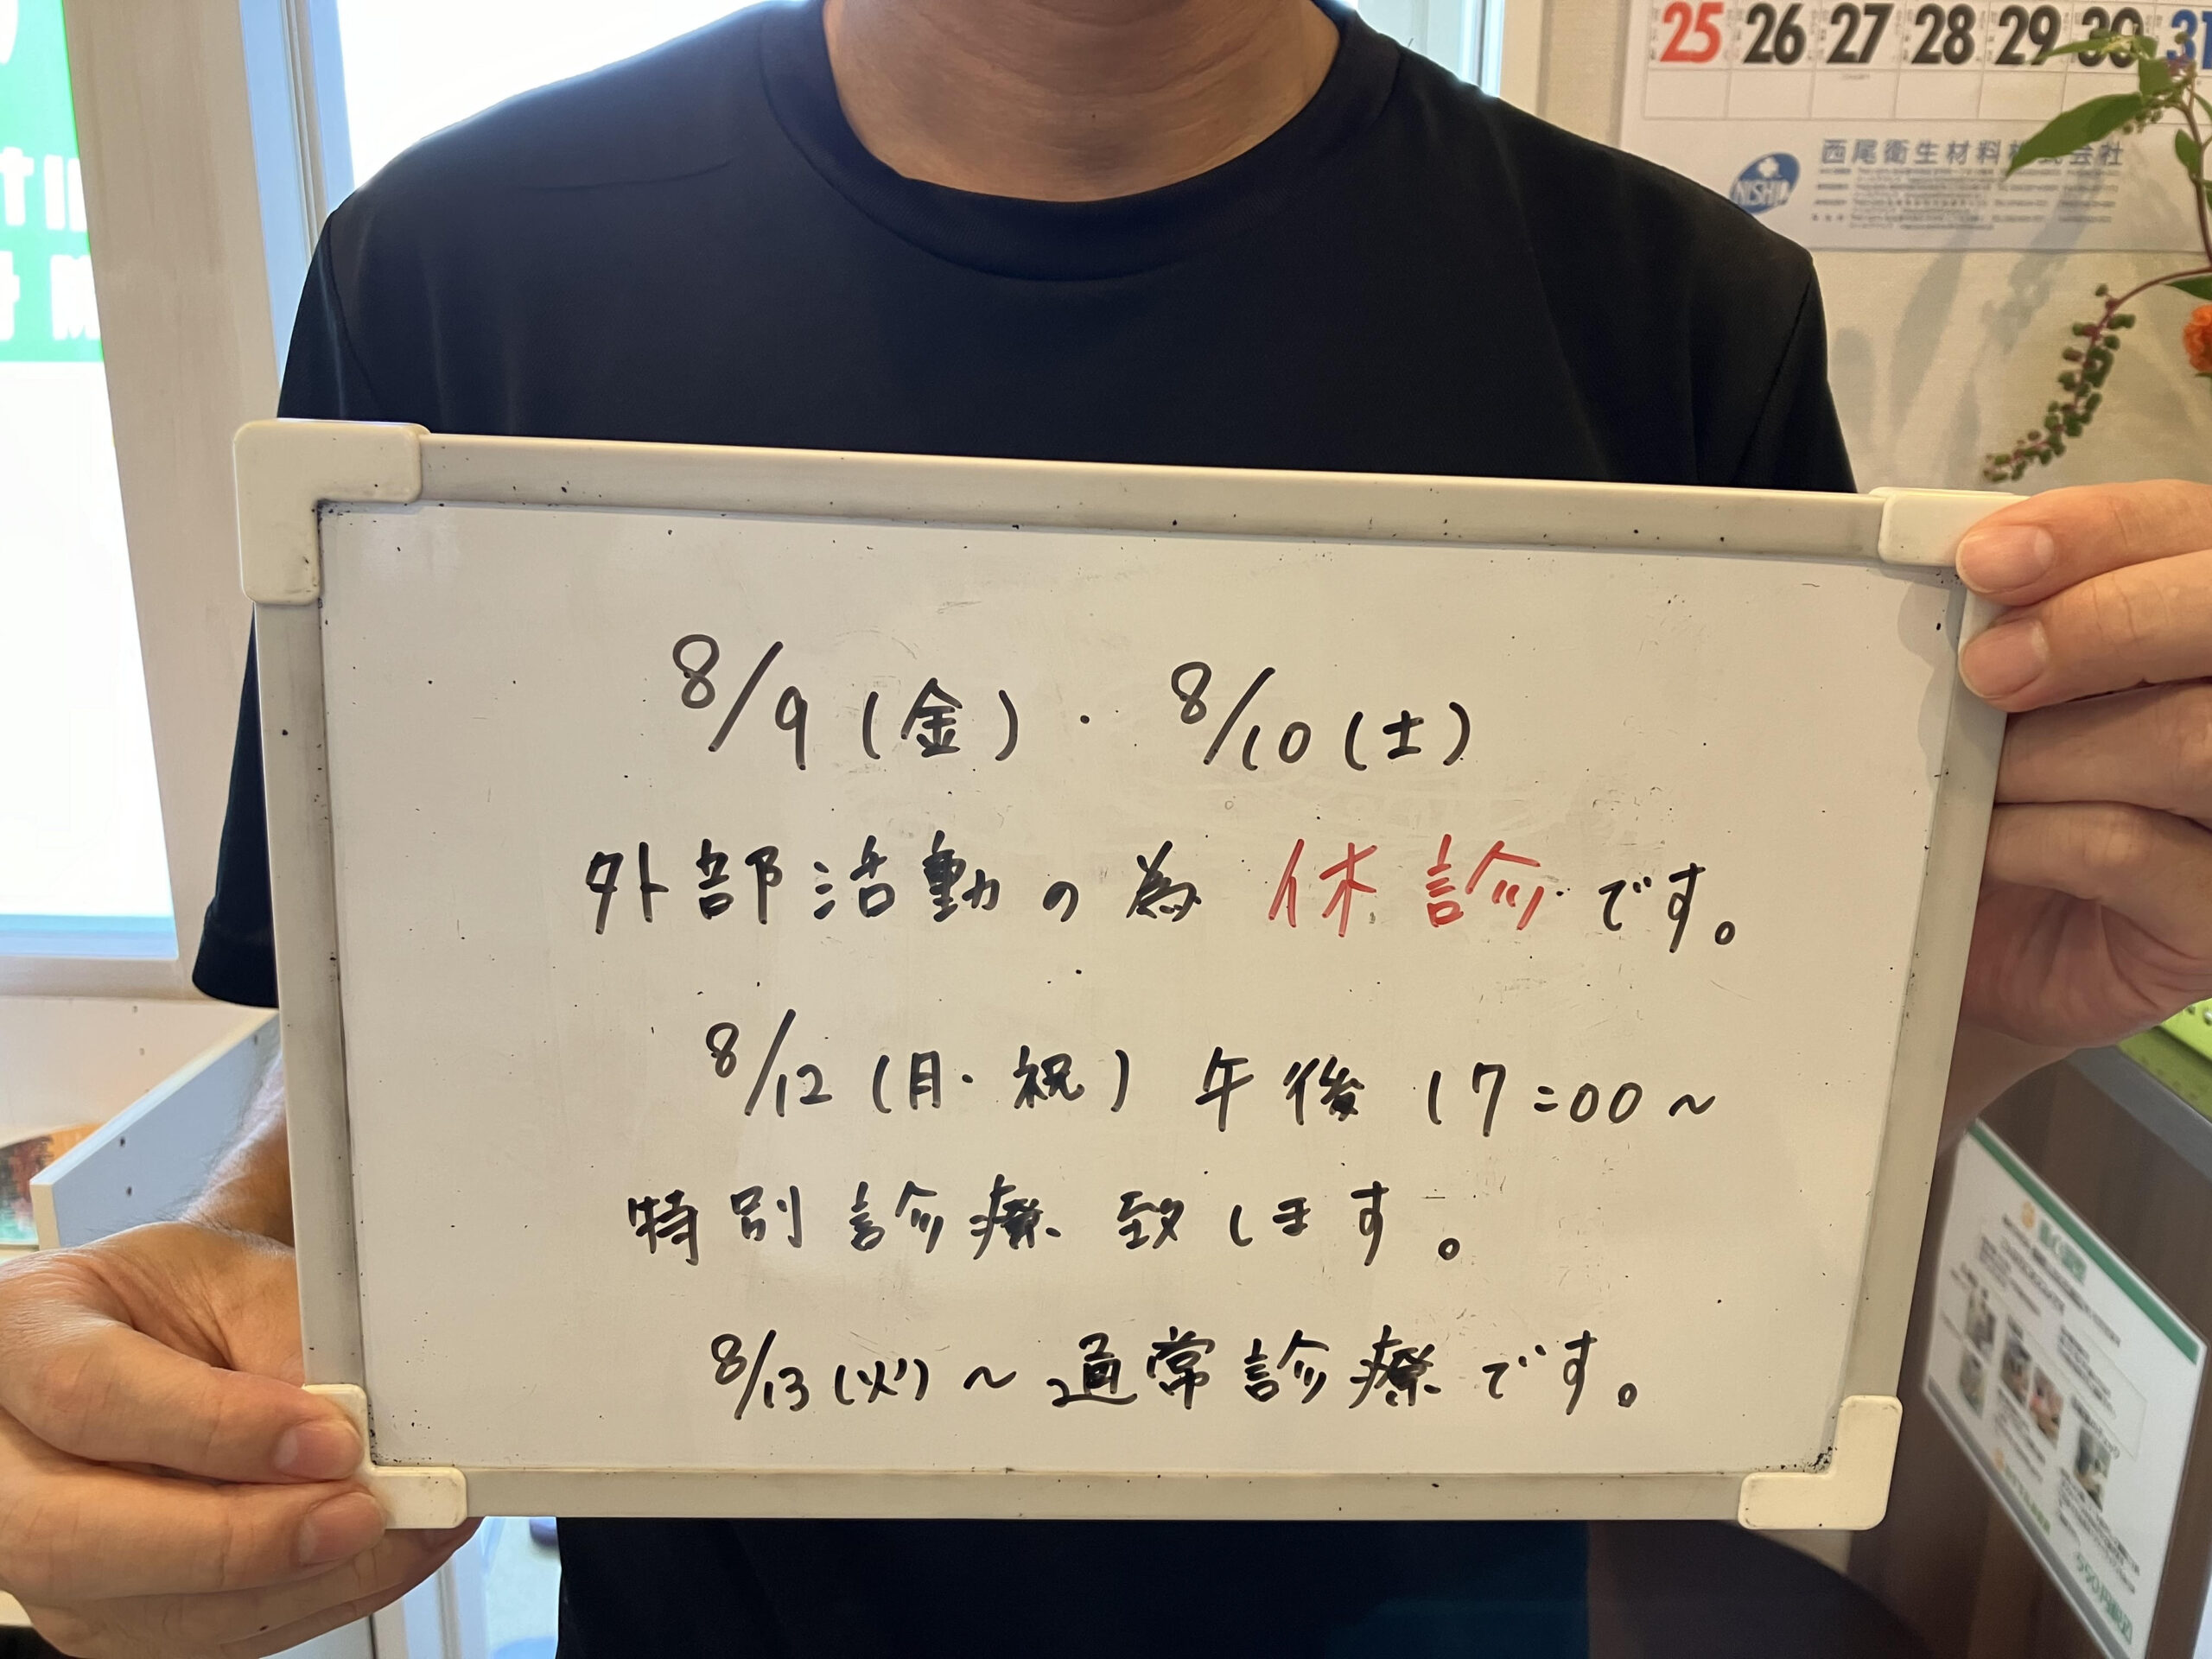 25 26 27 28 29 30 31
西尾衛生材料株式会社
NISHIO
8/9(金)・8/10(土)
外部活動の為 休診です。
8/12(月・祝)午後 17:00~
特別診療致します。
8/13(火)~通常診療です。